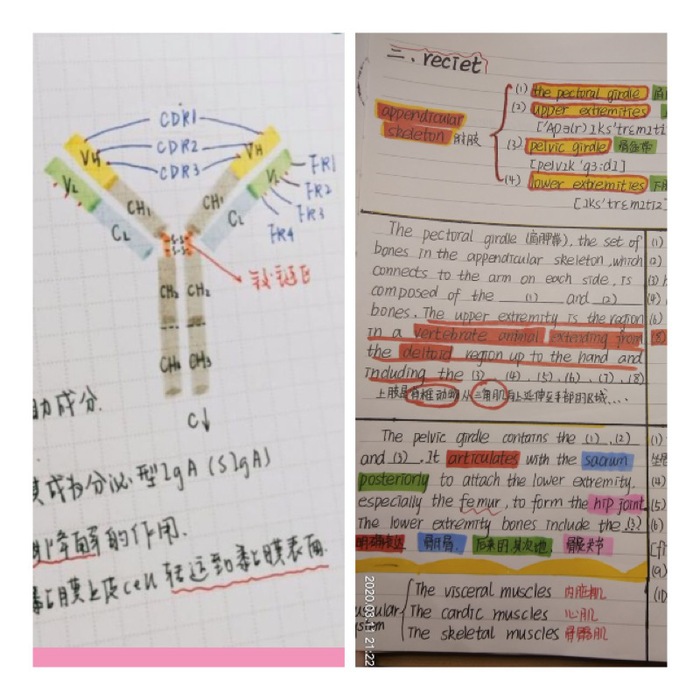 CDR1
CDR2
CDR3
VH
VL
CH1
CL
VH
VL
CH1
CL
FR1
FR2
FR3
FR4
S-S
S-S
铰链区
CH2 CH2
CH3 CH3
C↓
助成分.
成为分泌型IgA (SIgA)
降解的作用.
黏膜上皮cell 转运到黏膜表面.
二、reciet
appendicular
skeleton 附肢
(1) the pectoral girdle
(2) upper extremities
[ˈʌpə(r) ɪksˈtrɛmɪtɪ
(3) pelvic girdle 骨盆带
[pelvɪk ˈgɜːdl]
(4) lower extremities 下
[ɪksˈtrɛmɪtɪz]
The pectoral girdle (肩胛带), the set of
bones in the appendicular skeleton, which
connects to the arm on each side, is
composed of the (1) and (2)
bones. The upper extremity is the region
in a vertebrate animal extending from
the deltoid region up to the hand and
including the (3) (4) (5) (6) (7) (8)
上肢是脊椎动物从三角肌向上延伸至手部的区域...
(1)
(2)
(3)
(4)
(6)
(8)
The pelvic girdle contains the (1) (2)
and (3). It articulates with the sacrum
posteriorly to attach the lower extremity.
especially the femur, to form the hip joint.
The lower extremity bones include the (3)
后来的 其次地 髋关节
(1)
(4)
(5)
(6)
(9)
(10
uscular
stem
The visceral muscles 内脏肌
The cardic muscles 心肌
The skeletal muscles 骨骼肌
2020.03.11 21:22